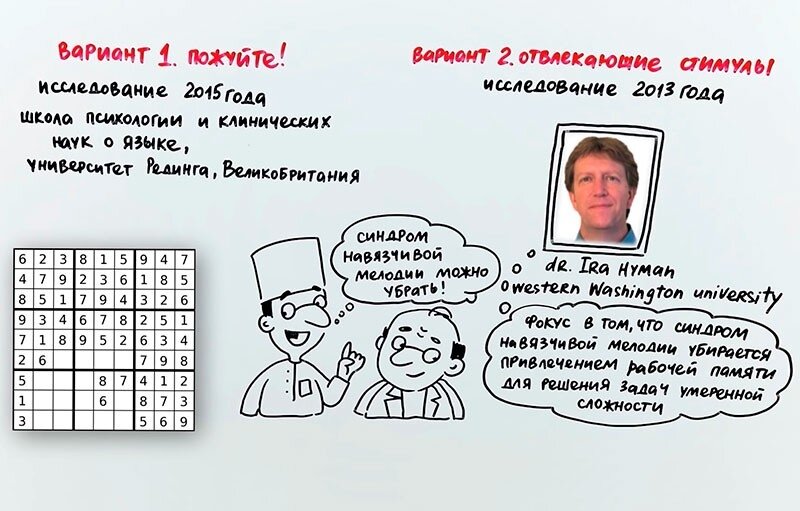 Вариант 1. пожуйте!
исследование 2015 года
школа психологии и клинических
наук о языке,
университет Рединга, Великобритания
Вариант 2. отвлекающие стимулы!
исследование 2013 года
dr. Ira Hyman
western Washington university
синдром
навязчивой
мелодии можно
убрать!
Фокус в том, что синдром
навязчивой мелодии убирается
привлечением рабочей памяти
для решения задач умеренной
сложности
6 2 3 8 1 5 9 4 7
4 7 9 2 3 6 1 8 5
8 5 1 7 9 4 3 2 6
9 3 4 6 7 8 2 5 1
7 1 8 9 5 2 6 3 4
2 6 7 9 8
5 8 7 4 1 2
1 6 8 7 3
3 5 6 9